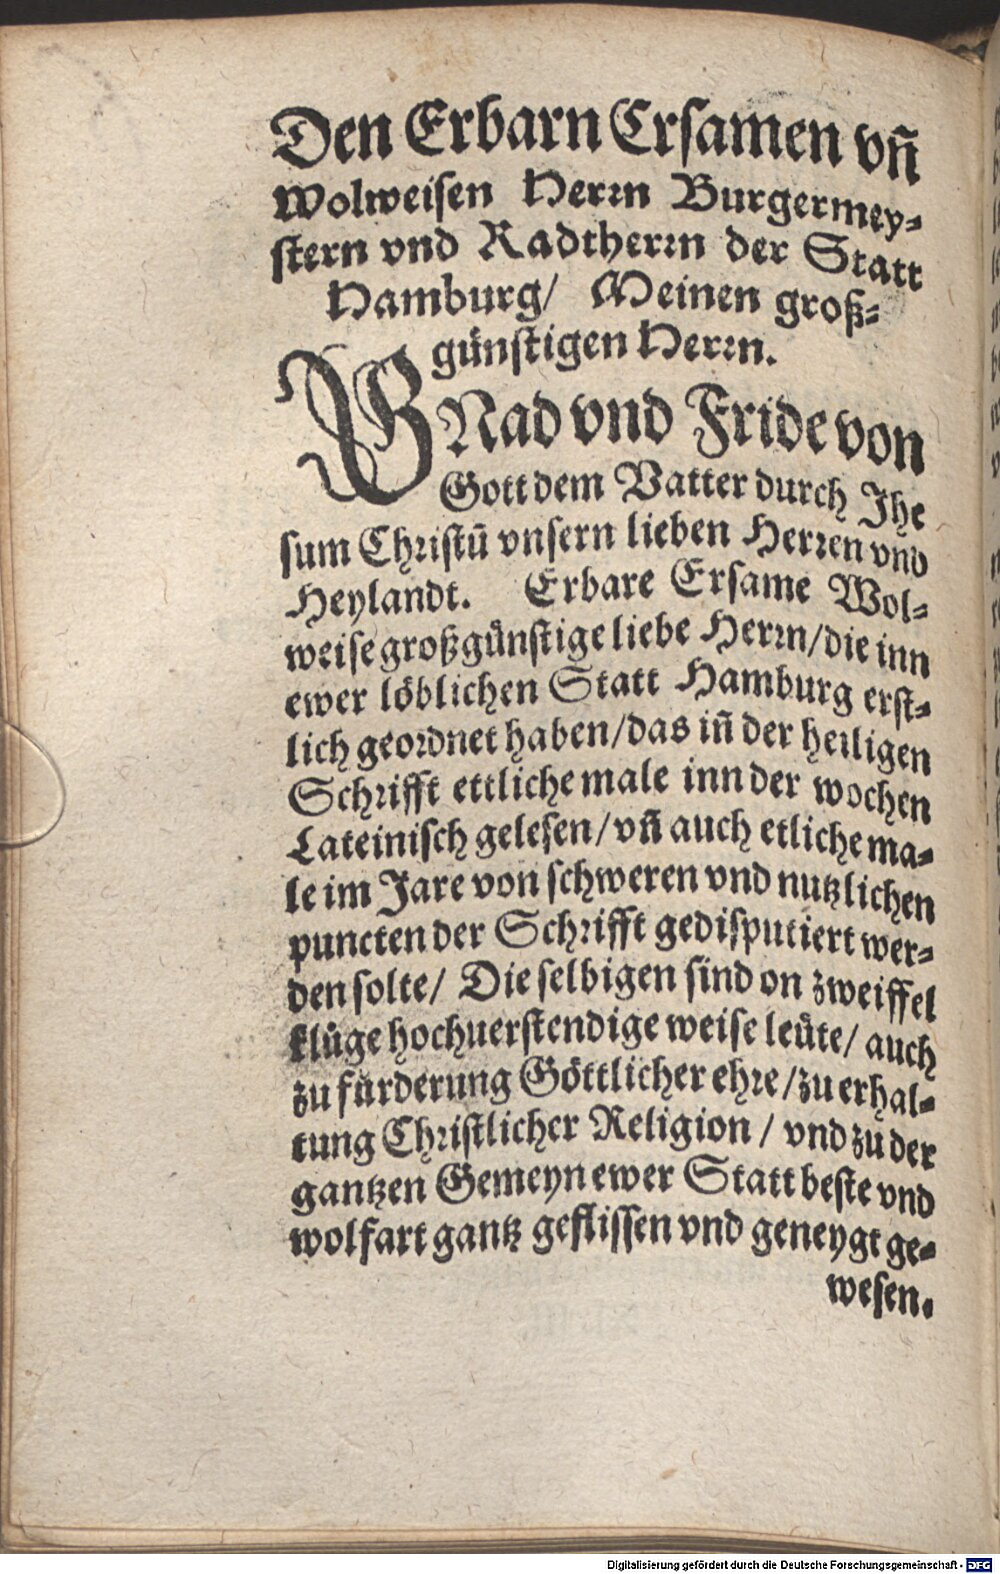 Den Erbarn Ersamen vñ
Wolweisen Herrn Burgermey-
stern vnd Radtherrn der Statt
Hamburg/ Meinen groß-
günstigen Herrn.
GNad vnd Fride von
Gott dem Vatter durch Jhe
sum Christū vnsern lieben Herren vnd
Heylandt. Erbare Ersame Wol-
weise großgünstige liebe Herrn/die inn
ewer löblichen Statt Hamburg erst-
lich geordnet haben/das iñ der heiligen
Schrifft ettliche male inn der wochen
Lateinisch gelesen/vñ auch etliche ma-
le im Jare von schweren vnd nutzlichen
puncten der Schrifft gedisputiert wer-
den solte/ Die selbigen sind on zweiffel
klůge hochuerstendige weise leüte/ auch
zu fürderung Göttlicher ehre/zu erhal-
tung Christlicher Religion/ vnd zu der
gantzen Gemeyn ewer Statt beste vnd
wolfart gantz geflissen vnd geneygt ge-
wesen.
Digitalisierung gefördert durch die Deutsche Forschungsgemeinschaft - DFG